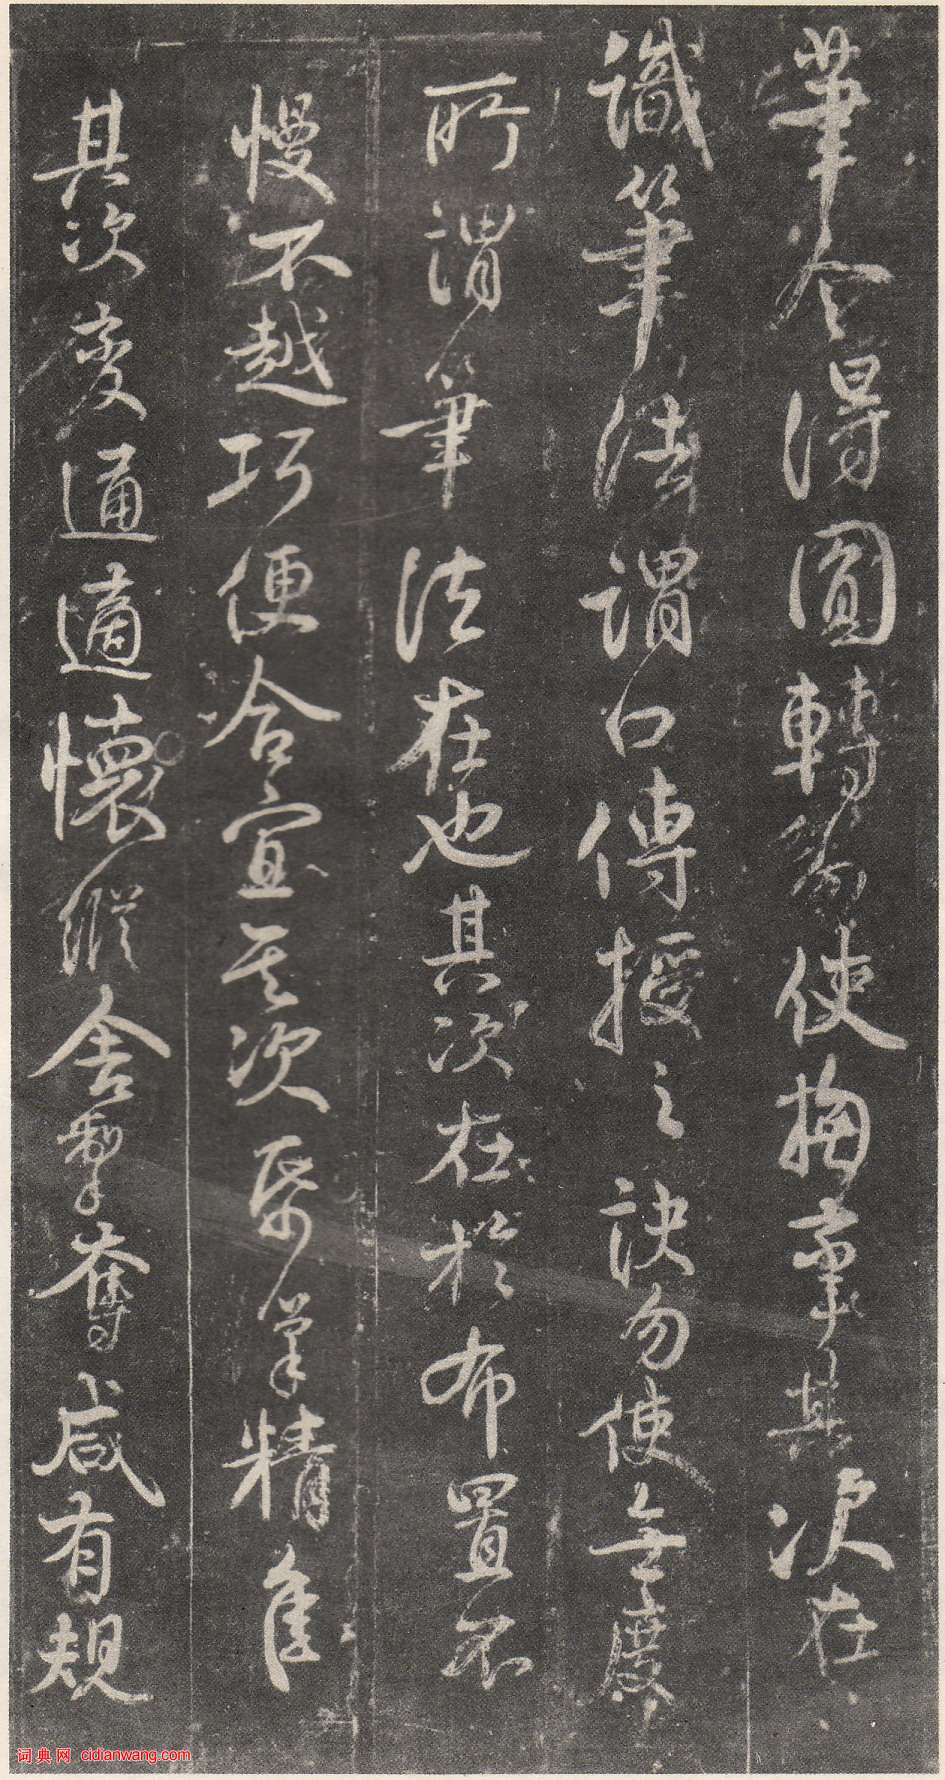 筆令得圓轉使拘攣其次在
識筆法謂口傳授之訣勿使無度
所謂筆法在也其次在於布置不
慢不越巧便合宜其次紙筆精佳
其次變通適懷縱舍掣奪咸有規
词典网 cidianwang.com